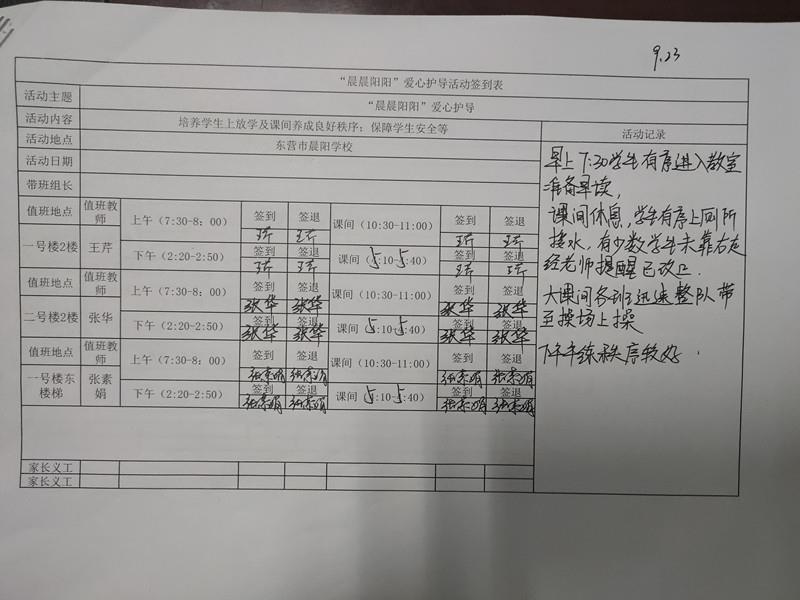 9.23
“晨晨阳阳”爱心护导活动签到表
活动主题 “晨晨阳阳”爱心护导
活动内容 培养学生上放学及课间养成良好秩序；保障学生安全等 活动记录
活动地点 东营市晨阳学校
活动日期
带班组长
值班地点 值班教师 上午（7:30-8：00） 签到 签退 课间（10:30-11:00） 签到 签退
王芹 王芹 王芹 王芹
一号楼2楼 王芹 下午（2:20-2:50） 签到 签退 课间（5:10-5:40） 签到 签退
王芹 王芹 王芹 王芹
值班地点 值班教师 上午（7:30-8：00） 签到 签退 课间（10:30-11:00） 签到 签退
张华 张华 张华 张华
二号楼2楼 张华 下午（2:20-2:50） 签到 签退 课间（5:10-5:40） 签到 签退
张华 张华 张华 张华
值班地点 值班教师 上午（7:30-8：00） 签到 签退 课间（10:30-11:00） 签到 签退
张素娟 张素娟 张素娟 张素娟
一号楼东楼梯 张素娟 下午（2:20-2:50） 签到 签退 课间（5:10-5:40） 签到 签退
张素娟 张素娟 张素娟 张素娟
家长义工
家长义工
早上7:30学生有序进入教室
准备早读，
课间休息，学生有序上厕所
接水，有少数学生未靠右走
经老师提醒已改正.
大课间各班迅速整队带
至操场上操
下午午练秩序较好.